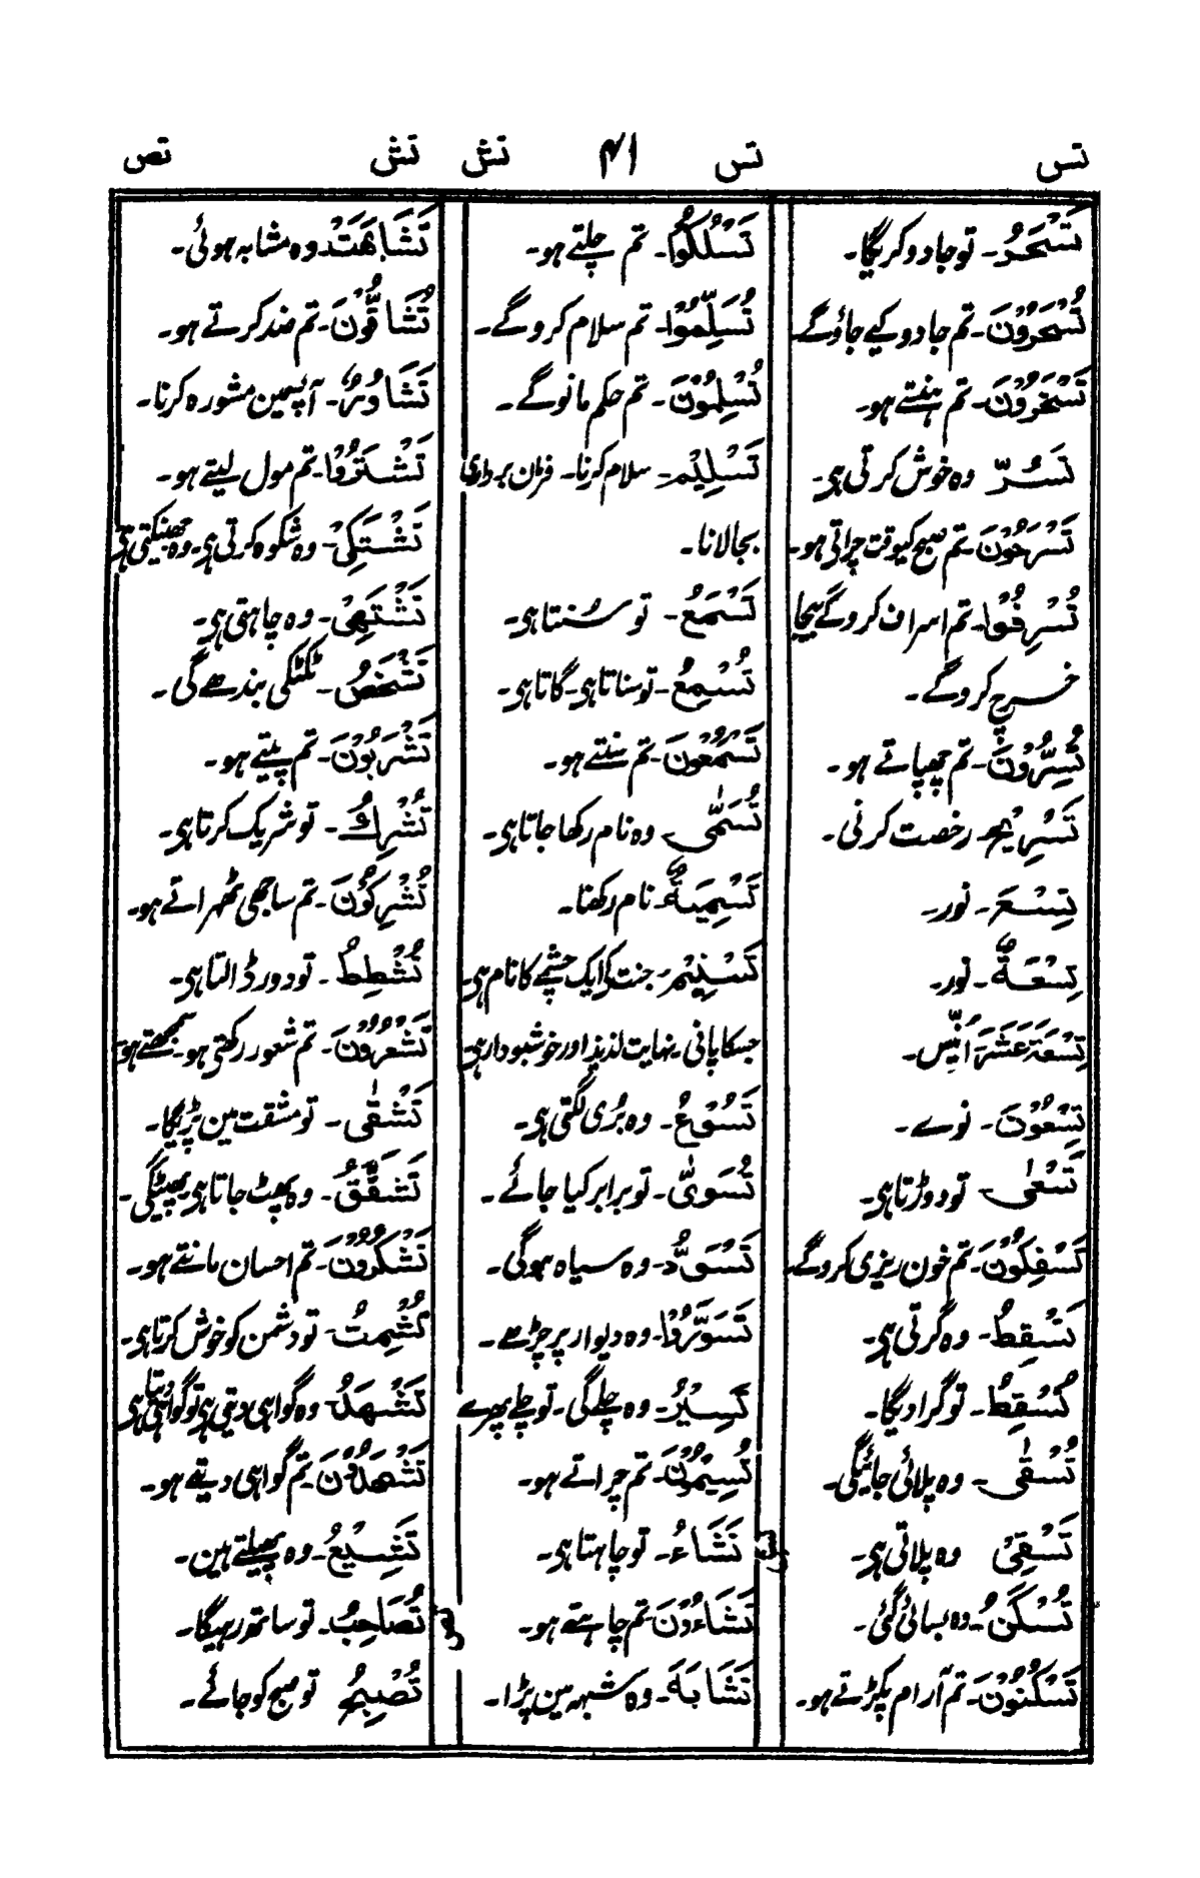 تس تس ۴۱ تش تش تص
تَسْحَرُ۔ تو جادو کریگا۔
تُسْحَرُوْنَ۔ تم جادو کیے جاؤ گے۔
تَسْخَرُوْنَ۔ تم ہنستے ہو۔
تَسُرُّ وہ خوش کرتی ہی۔
تَسْرَحُوْنَ۔ تم صبح کیوقت چراتی ہو۔
تُسْرِفُوْا۔ تم اسراف کرو گے بیجا
خرچ کرو گے۔
تُسِرُّوْنَ۔ تم چھپاتے ہو۔
تَسْرِیْحٌ۔ رخصت کرنی۔
تِسْعَ۔ نور۔
تِسْعَةٌ۔ نور۔
تِسْعَةَ عَشَرَ اُنِّیس۔
تِسْعُوْنَ۔ نوے۔
تَسْعٰی۔ تو دوڑتا ہی۔
تَسْفِکُوْنَ۔ تم خون ریزی کرو گے۔
تَسْقُطُ۔ وہ گرتی ہی۔
تُسْقِطُ۔ تو گرا دیگا۔
تُسْقٰی۔ وہ پلائی جائیگی۔
تَسْقِیْ وہ پلاتی ہی۔
تُسْکَنُ۔ وہ بسائی گئی۔
تَسْکُنُوْنَ۔ تم آرام پکڑتے ہو۔
تَسْلُکُوْا۔ تم چلتے ہو۔
تُسَلِّمُوْا۔ تم سلام کرو گے۔
تُسْلِمُوْنَ۔ تم حکم مانو گے۔
تَسْلِیْم۔ سلام کرنا۔ فرمان برداری
بجا لانا۔
تَسْمَعُ۔ تو سنتا ہی۔
تُسْمِعُ۔ تو سناتا ہی۔ گاتا ہی۔
تَسْمَعُوْنَ۔ تم سنتے ہو۔
تُسَمّٰی وہ نام رکھا جاتا ہی۔
تَسْمِیَةٌ۔ نام رکھنا۔
تَسْنِیْمٍ۔ جنت کی ایک چشمے کا نام ہی۔
جسکا پانی۔ نہایت لذیذ اور خوشبودار ہی۔
تَسُوْءُ۔ وہ بُری لگتی ہی۔
تُسَوّٰی۔ تو برابر کیا جائے۔
تَسْوَدُّ۔ وہ سیاہ ہوگی۔
تَسَوَّرُوْا۔ وہ دیوار پر چڑھے۔
تَسِیْرُ۔ وہ چلے گی۔ تو چلے پھرے
تُسِیْمُوْنَ۔ تم چراتے ہو۔
تَشَاءُ۔ تو چاہتا ہی۔
تَشَاءُوْنَ تم چاہتے ہو۔
تَشَابَهَ۔ وہ شبہہ مین پڑا۔
تَشَابَهَتْ۔ وہ مشابہ ہوئی۔
تُشَاقُّوْنَ۔ تم ضد کرتے ہو۔
تَشَاوُرٌ۔ آپسمین مشورہ کرنا۔
تَشْتَرُوْا۔ تم مول لیتے ہو۔
تَشْتَکِیْ۔ وہ شکوہ کرتی ہی۔ وہ جھینکتی ہی
تَشْتَهِیْ۔ وہ چاہتی ہی۔
تَشْخَصُ۔ ٹکٹکی بندھے گی۔
تَشْرَبُوْنَ۔ تم پیتے ہو۔
تُشْرِكُ۔ تو شریک کرتا ہی۔
تُشْرِکُوْنَ۔ تم ساجھی ٹھہراتے ہو۔
تُشْطِطُ۔ تو دور ڈالتا ہی۔
تَشْعُرُوْنَ۔ تم شعور رکھتی ہو۔ سمجھتے ہو۔
تَشْقٰی۔ تو مشقت مین پڑیگا۔
تَشَقَّقُ۔ وہ پھٹ جاتا ہی پھٹیگی۔
تَشْکُرُوْنَ۔ تم احسان مانتے ہو۔
تُشْمِتُ۔ تو دشمن کو خوش کرتا ہی۔
تَشْهَدُ۔ وہ گواہی دیتی ہی تو گواہی دیتا ہی
تَشْهَدُوْنَ۔ تم گواہی دیتے ہو۔
تَشِیْعُ۔ وہ پھیلتے ہین۔
تُصَاحِبُ۔ تو ساتھ رہیگا۔
تُصْبِحُ تو صبح کو جائے۔